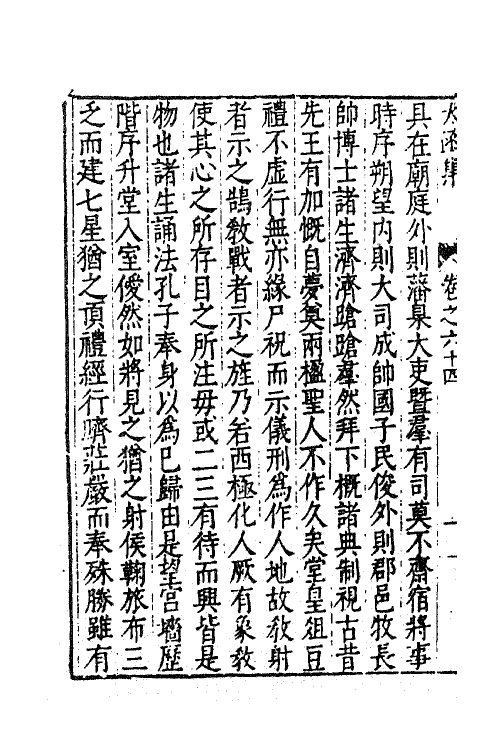 太函集 卷之六十四
具在廟庭外則藩臬大吏暨羣有司莫不齋宿將事
時序朔望內則大司成帥國子民俊外則郡邑牧長
帥博士諸生濟濟蹌蹌羣然拜下概諸典制視古昔
先王有加慨自夢奠兩楹聖人不作久矣堂皇俎豆
禮不虛行無亦緣尸祝而示儀刑爲作人地故敎射
者示之鵠敎戰者示之旌乃若西極化人厥有象敎
使其心之所存目之所注毋或二三有待而興皆是
物也諸生誦法孔子奉身以爲巳歸由是望宮牆歷
階序升堂入室僾然如將見之猶之射侯鞠旅布三
乏而建七星猶之頂禮經行嚌莊嚴而奉殊勝雖有